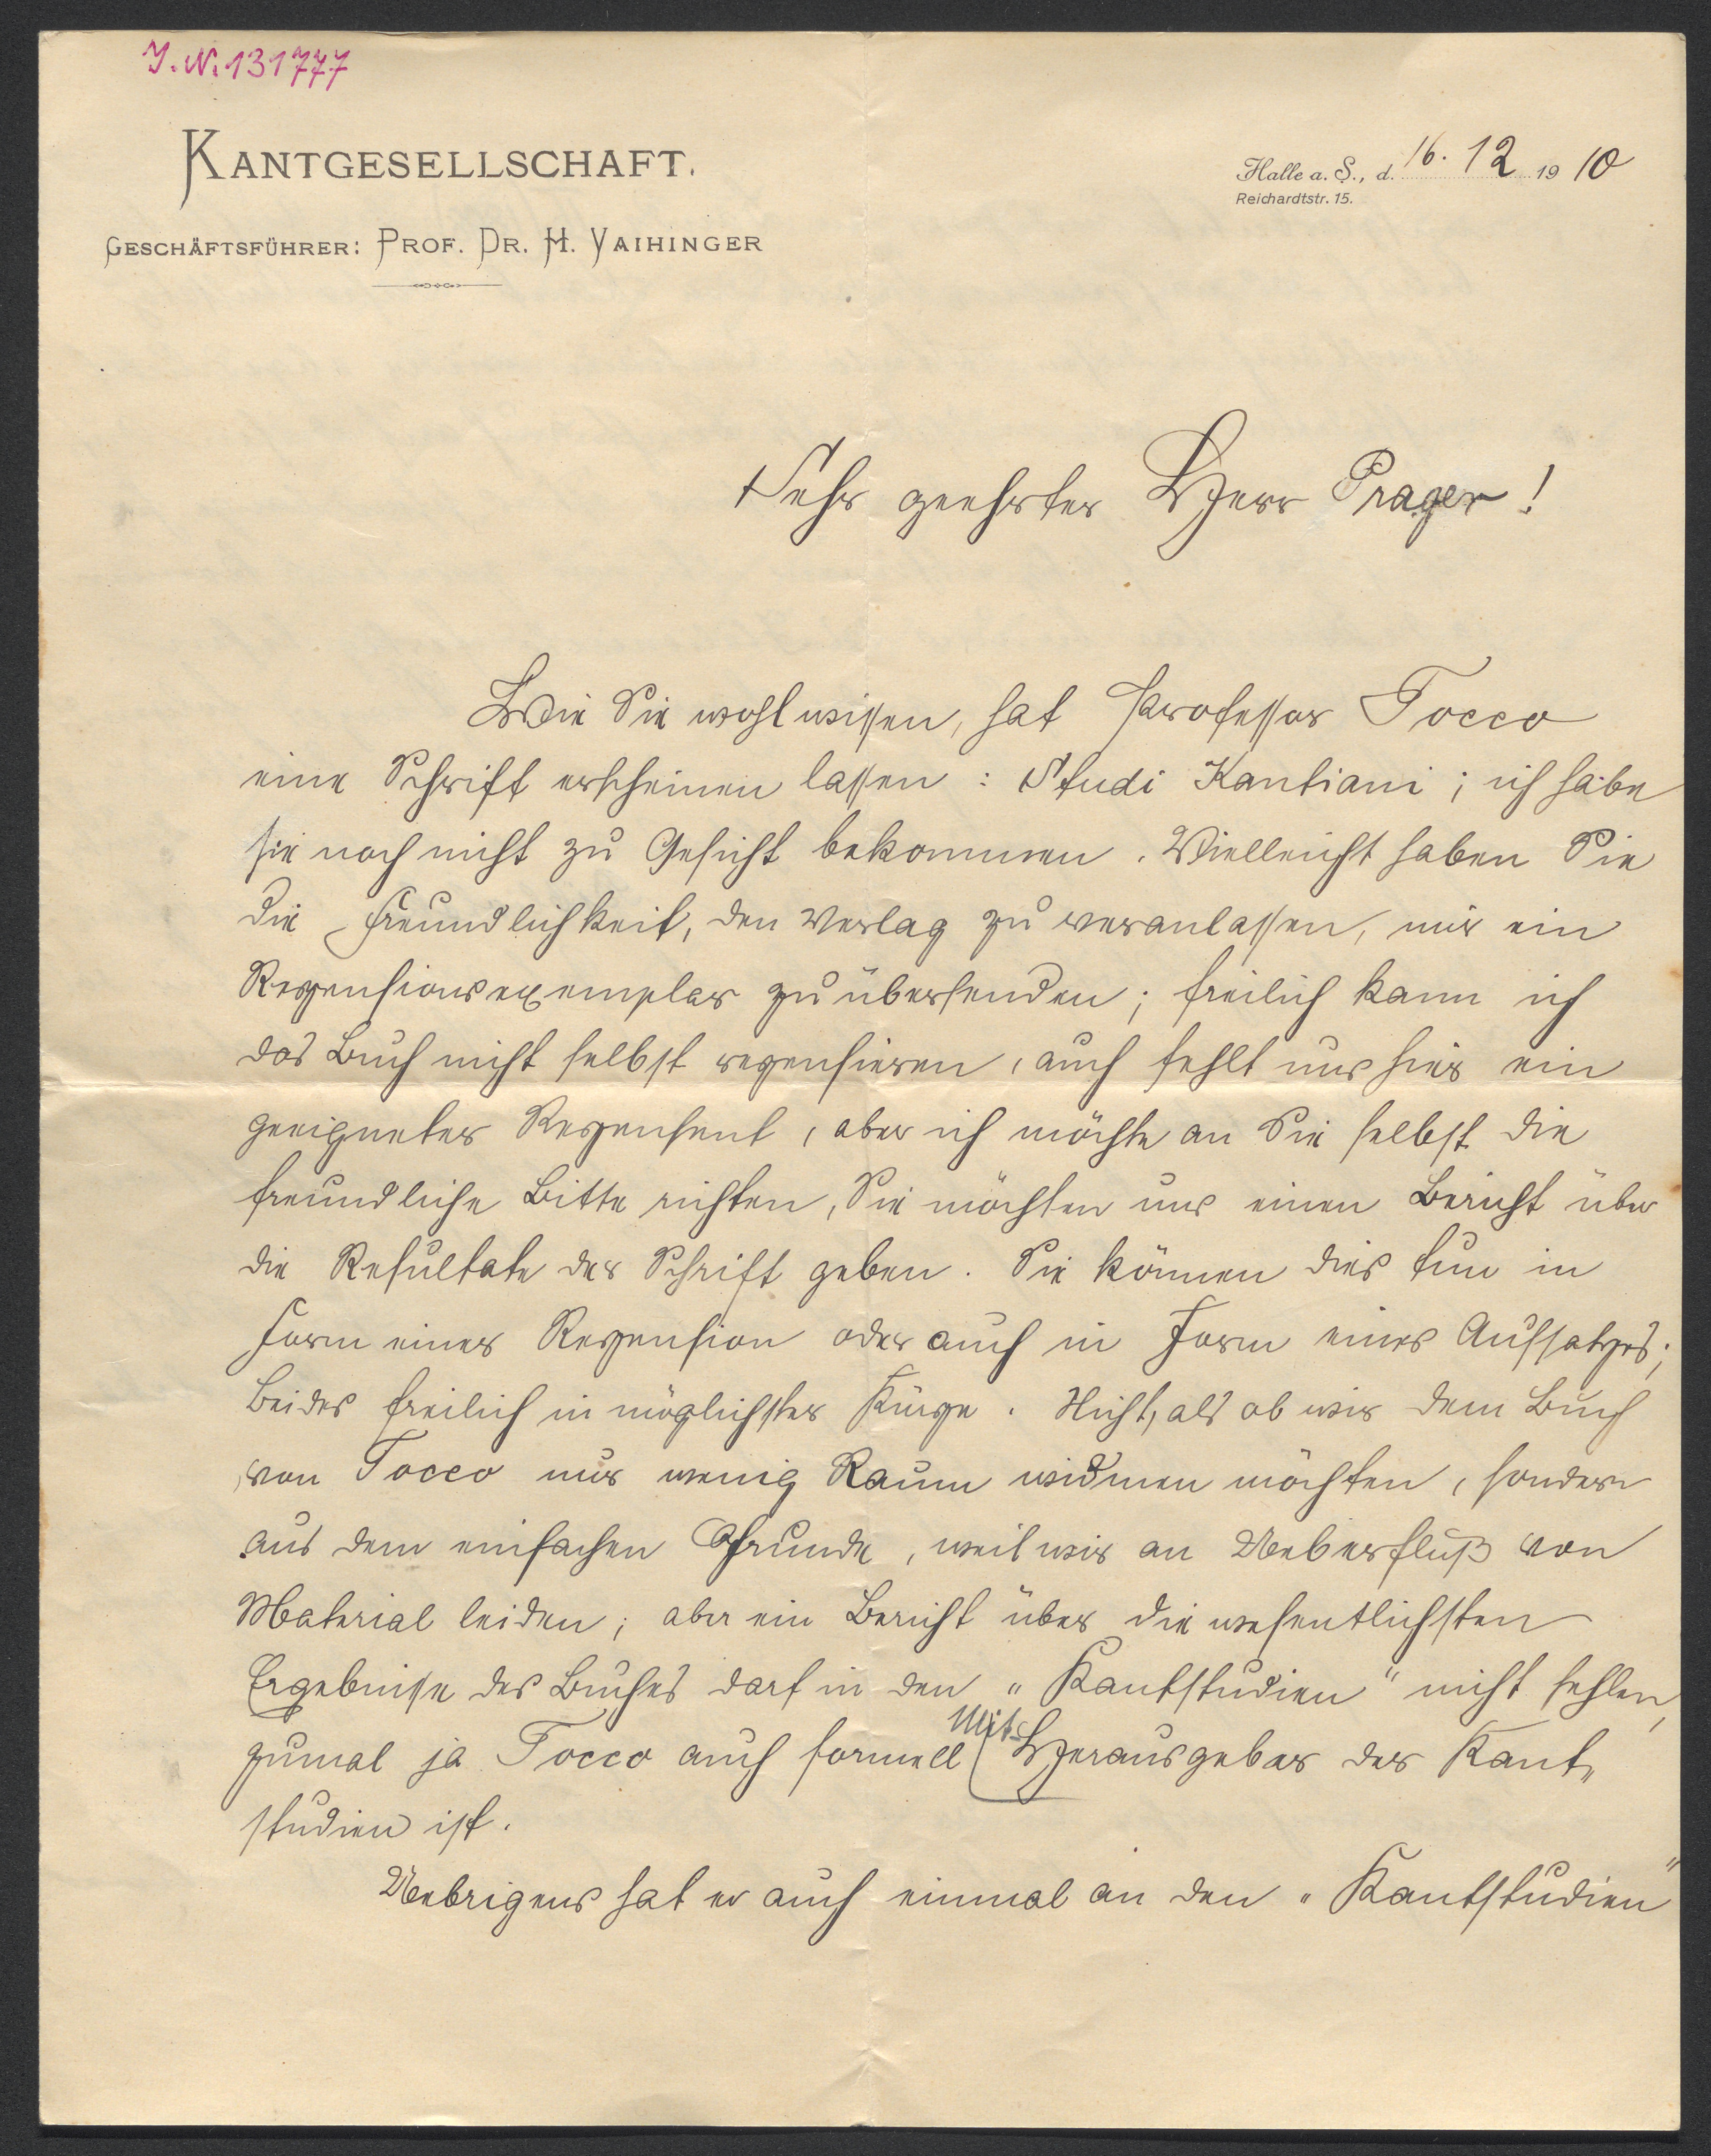 J.N.131777
KANTGESELLSCHAFT.
GESCHÄFTSFÜHRER: PROF. DR. H. VAIHINGER
Halle a. S., d. 16. 12 1910
Reichardtstr. 15.
Sehr geehrter Herr Prager!
Wie Sie wohl wissen, hat Professor Tocco
eine Schrift erscheinen lassen: Studi Kantiani; ich habe
sie noch nicht zu Gesicht bekommen. Vielleicht haben Sie
die Freundlichkeit, den Verlag zu veranlassen, mir ein
Rezensionsexemplar zu übersenden; freilich kann ich
das Buch nicht selbst rezensieren, auch fehlt uns hier ein
geeigneter Rezensent, aber ich möchte an Sie selbst die
freundliche Bitte richten, Sie möchten uns einen Bericht über
die Resultate der Schrift geben. Sie können dies tun in
Form einer Rezension oder auch in Form eines Aufsatzes;
beides freilich in möglichster Kürze. Nicht, als ob wir dem Buch
von Tocco nur wenig Raum widmen möchten, sondern
aus dem einfachen Grunde, weil wir an Ueberfluß von
Material leiden; aber ein Bericht über die wesentlichsten
Ergebnisse des Buches darf in den „Kantstudien" nicht fehlen,
zumal ja Tocco auch formell Mit-Herausgeber der Kant-
studien ist.
Uebrigens hat er auch einmal an den „Kantstudien"